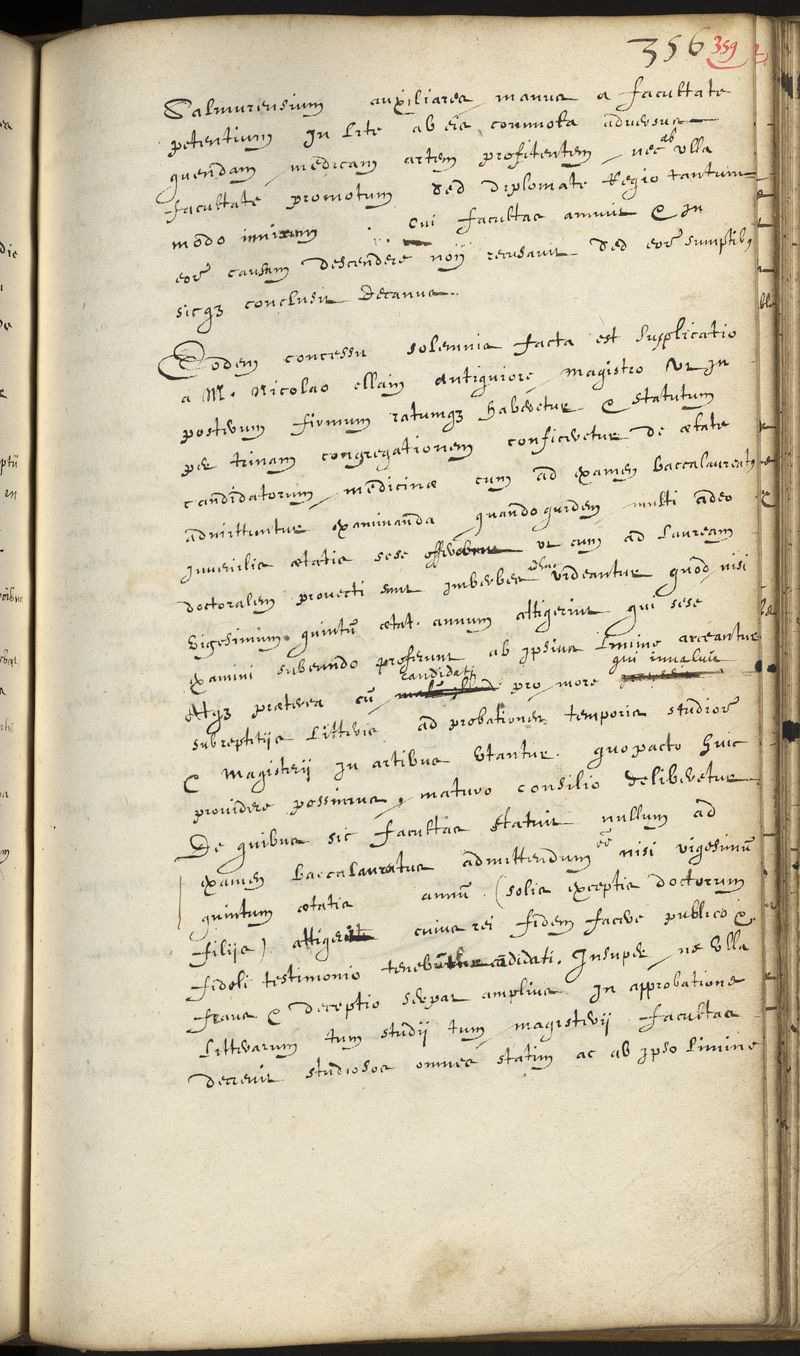 356 359
Salmurensium auxiliares manus a facultate
petentium In lite ab eis commota aduersus
quendam medicam artem profitentem, nec ab vlla
facultate promotum sed diplomate Regio tantum
modo innixum. Cui facultas annuit & in
eorum causam descendere non recusauit sed eorum sumptibus
sicque conclusit Decanus.
Eodem concessu solemnis facta est supplicatio
a M. Nicolao ellain antiquiore magistro vt in
posterum firmum ratumque haberetur & statutum
per trinam congregationem conficeretur de ætate
candidatorum medicinæ cum ad examen baccalaureatus
admittuntur examinanda quandoquidem multi adeo
juuenilis ætatis sese offerunt vt cum ad lauream
doctoralem prouecti sunt imberbes videantur quod nisi
vigesimum quintū ætat. annum attigerint qui sese
examini subeundo proferunt ab ipsius limine arceantur
Atque præterea cū candidati pro more qui inualuit
subreptitijs litteris ad probationem temporis studiorum
& magisterij in artibus vtantur. quo pacto huic
prouidere possimus, maturo consilio deliberetur
De quibus sic facultas statuit nullum ad
examen baccalaureatus admittendum eē nisi vigesimū
quintum ætatis annū (solis exceptis doctorum
filijs) attigerit cuius rei fidem facere publico &
fideli testimonio tenebūtur cādidati. Insuper ne vlla
fraus & deceptio serpat amplius In approbatione
litterarum tum studij tum magisterij facultas
decreuit studiosos omnes statim ac ab ipso limine